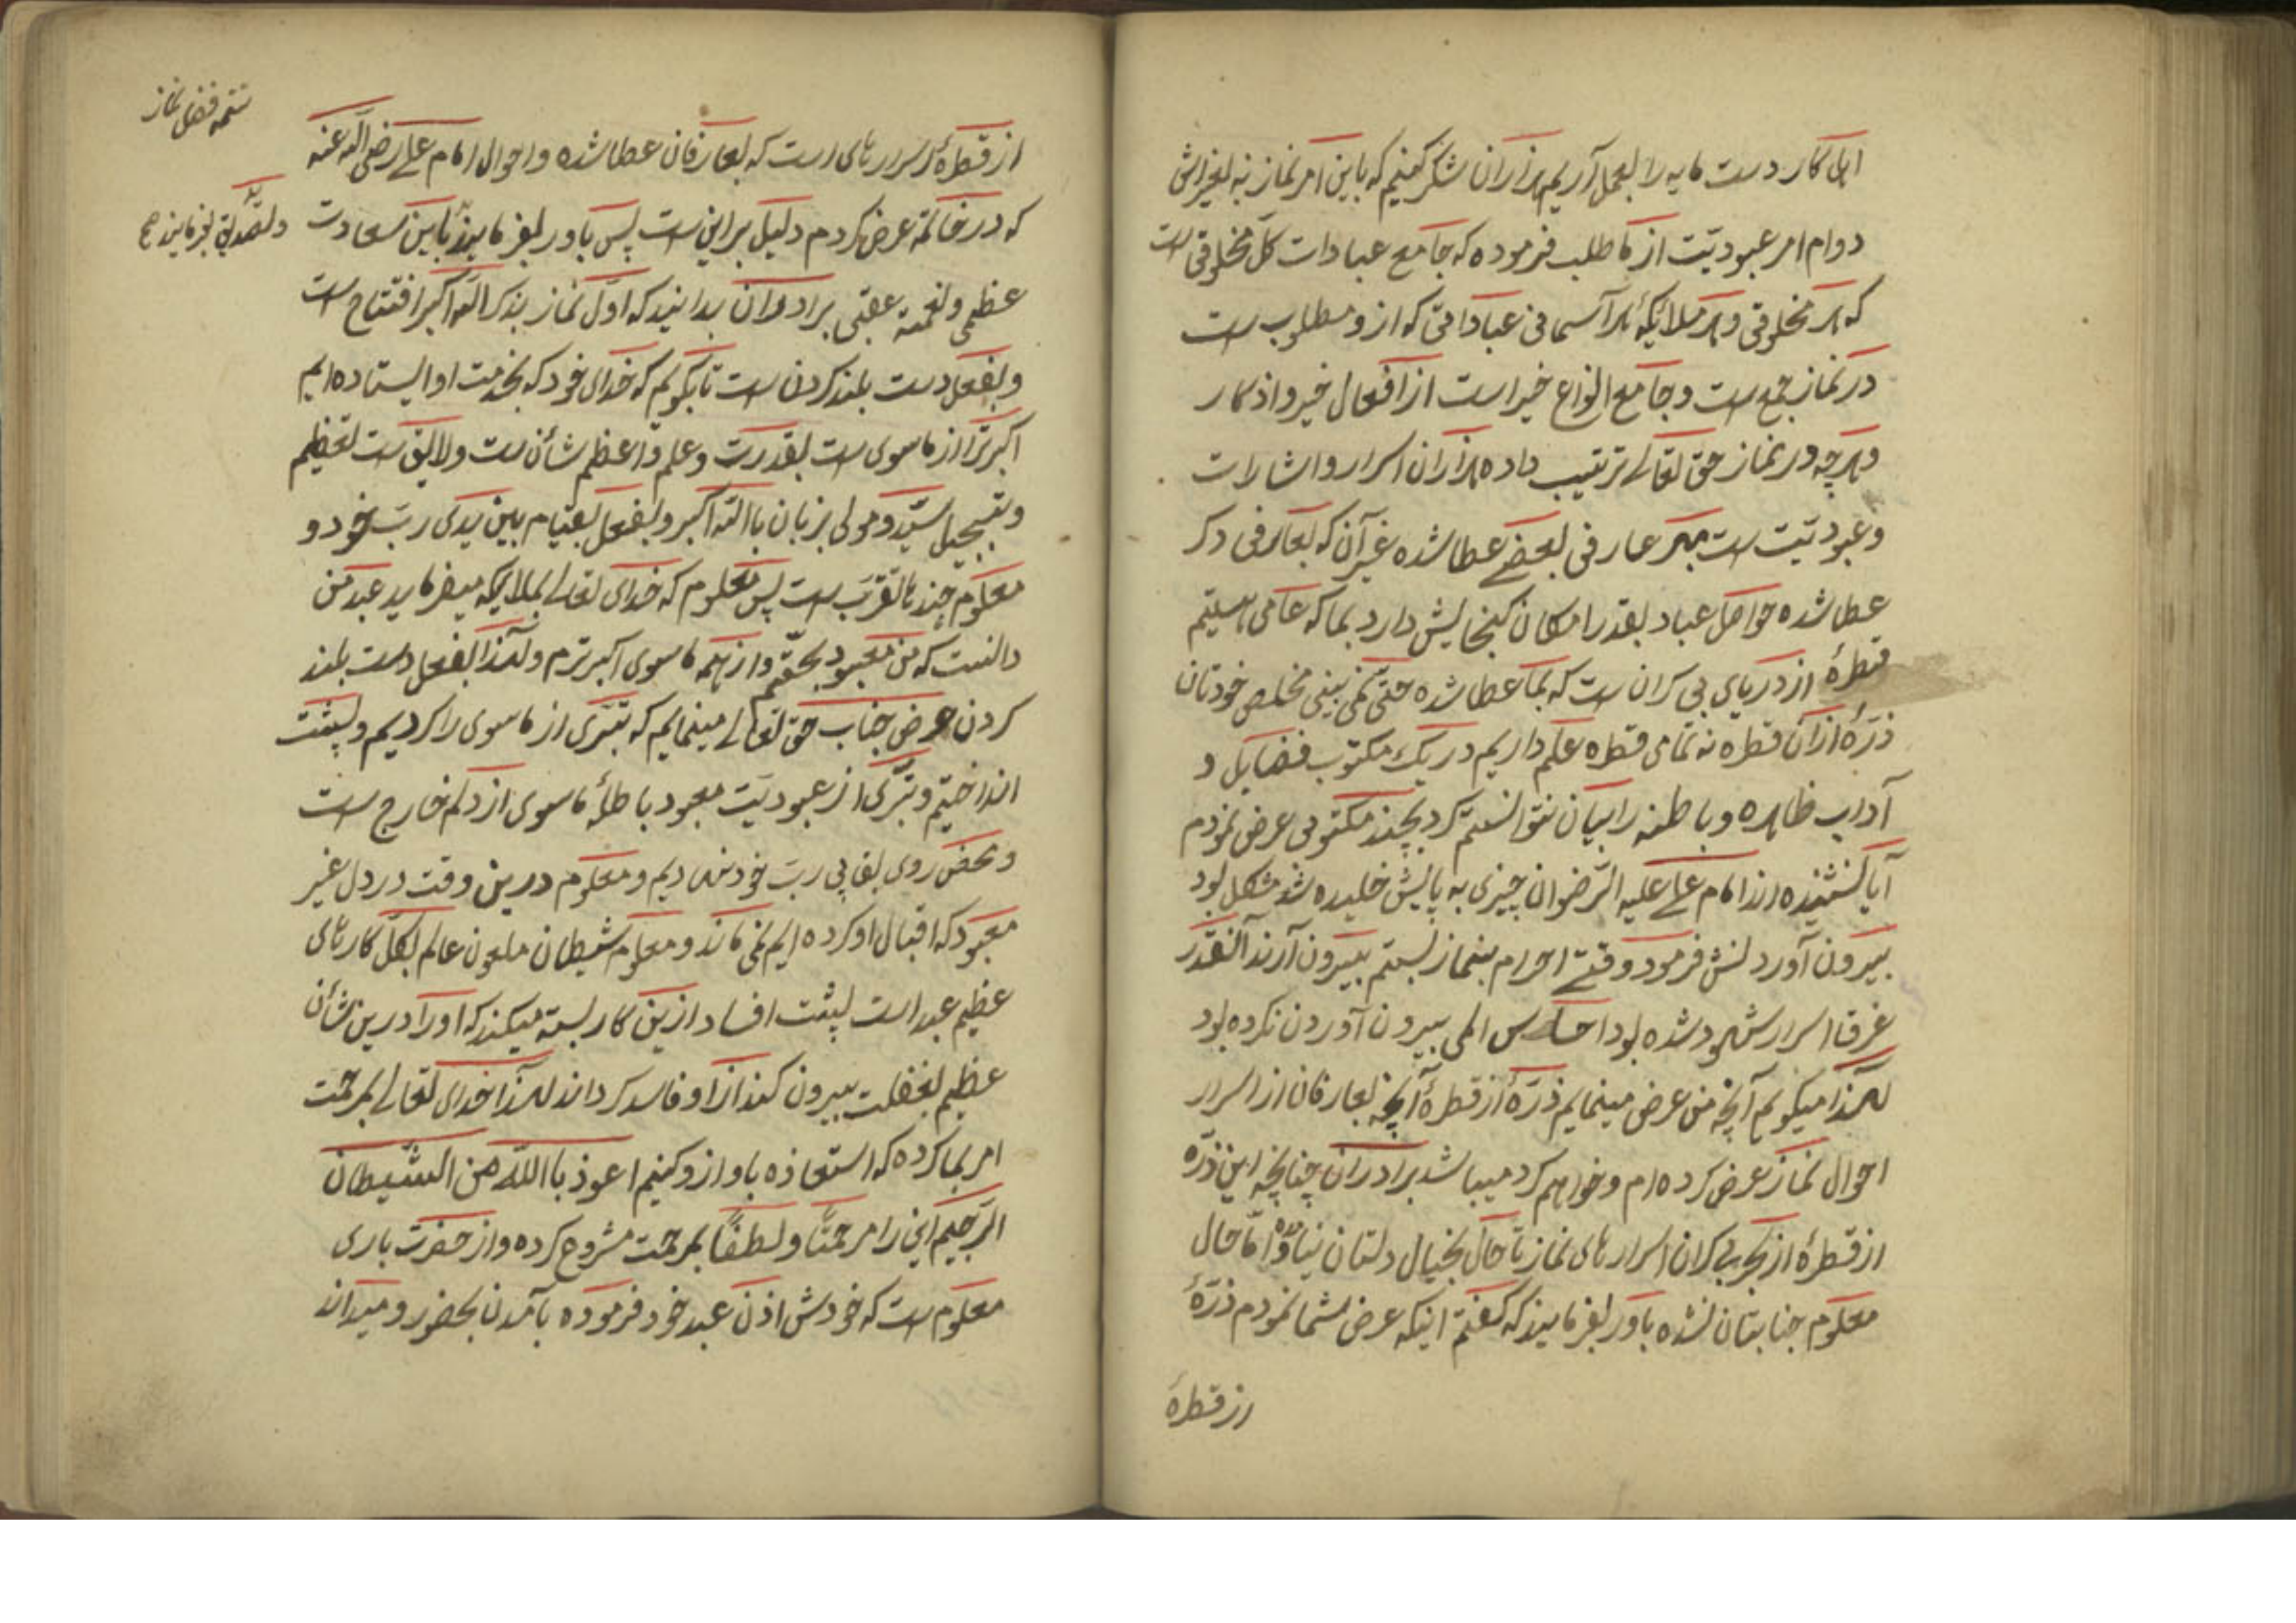 این کار دست مایه را بعمل آریم هزاران شکر کنیم که باین امر نماز نه لغزانش
دوام امر عبودیّت از ما طلب فرموده که جامع عبادات کلّ مخلوقی است
که هر مخلوقی و هر ملائکه هر آسمانی عباداتی که ازو مطلوب است
در نماز جمع است و جامع انواع خیر است از افعال خیر و اذکار
و هرچه در نماز حق تعالی ترتیب داده هزاران اسرار و اشارات
و عبودیّت است بهر عارفی بعضی عطا شده غیر آن که بعارفی دکر
عطا شده حواصل عباد بقدر امکان کنجایش دارد بما که عامی هستیم
قطرهٔ از دریای بی کران است که بما عطا شده حتّی نمی بینی مخلص خودتان
ذرّهٔ از آن قطره نه تمامی قطره علم داریم در یک مکتوب فضایل و
آداب ظاهره و باطنه را بیان نتوانستیم کرد بچند مکتوبی عرض نمودم
آیا نشنیده اند امام علی علیه الرّضوان چیزی به پایش خلیده شد مشکل بود
بیرون آوردنش فرمود وقتی احرام بنماز بستم بیرون آرند آنقدر
غرق اسرار شهود شده بود احساس المی بیرون آوردن نکرده بود
لهذا میکویم آنچه من عرض مینمایم ذرّهٔ از قطرهٔ آنچه بعارفان از اسرار
احوال نماز عرض کرده ام و خواهم کرد میباشد برادران چنانچه این ذرّه
از قطرهٔ از بحر بی کران اسرارهای نماز تا حال بخیال دلتان نیاوده امّا حال
معلوم جنابتان نشده باور بفرمایند که کفتم اینکه عرض شما نمودم ذرّهٔ
از قطرهٔ
تتمه فضل نماز
از قطرهٔ اسرارهای است که بعارفان عطا شده و احوال امام علی رضی الله عنه
که در خاتمه عرض کردم دلیل بر این است پس باور بفرمایند باین سعادت
و تصدیق بفرمایند صح
عظمی و نعمته عقبی برادران بدانید که اوّل نماز بذکر الله اکبر افتتاح است
و بفعل دست بلند کردن است تا بکویم که خدای خود که بخدمت او ایستاده ایم
اکبرتر از ماسوی است بقدرت و علم و اعظم شأن است و لایق است تعظیم
و تبجیل سیّد و مولی بزبان باالله اکبر و بفعل بقیام بین یدی ربّ خود و
معلوم چند تا تقرّب است پس معلوم که خدای تعالی بملایکه میفرماید عبد من
دانست که من معبود بحقّم و از همه ماسوی اکبرترم و لهذا بفعل دست بلند
کردن عرض جناب حق تعالی مینمایم که تبرّی از ماسوی را کردیم و بپشت
انداختیم و تبرّی از عبودیّت معبود باطلهٔ ماسوی از دلم خارج است
و محض روی بقایی ربّ خود نهادیم و معلوم درین وقت در دل غیر
معبود که اقبال او کرده ایم نمی ماند و معلوم شیطان ملعون عالم بکلّ کارهای
عظیم عبد است بپشت افساد ازین کار بسته میکند که او را درین شأن
عظیم بغفلت بیرون کند از او فاسد کرداند لهذا خدای تعالی بمرحمت
امر بما کرده که استعاذه باو ازو کنیم اعوذ باالله من الشّیطان
الرّجیم این را مرحمتًا و لطفًا بمرحمت مشروع کرده و از حضرت باری
معلوم است که خودش اذن عبد خود فرموده بآمدن بحضور و میداند